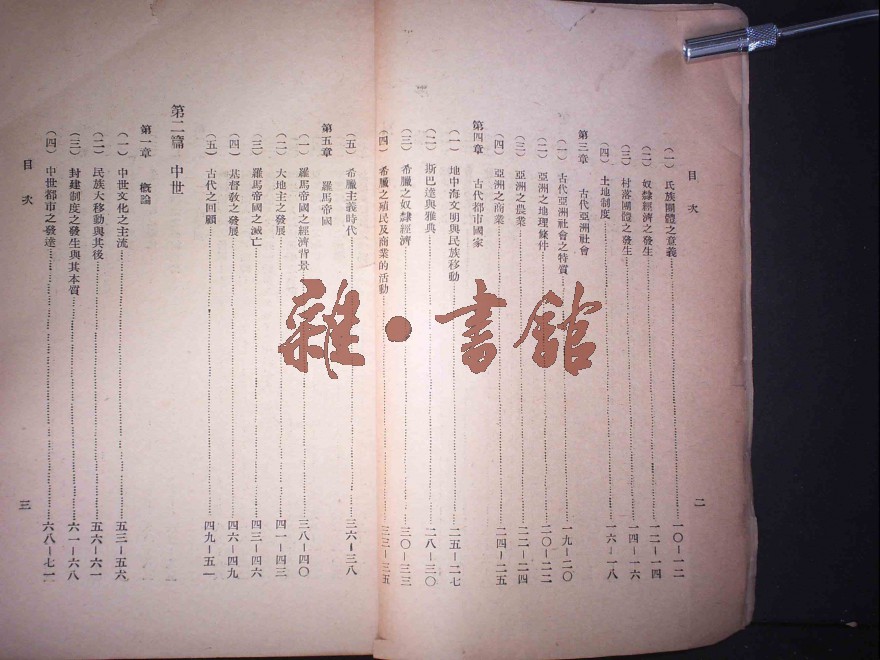 目次
二
(一)氏族團體之意義…………一〇—一二
(二)奴隸經濟之發生…………一二—一四
(三)村落團體之發生…………一四—一六
(四)土地制度…………一六—一八
第三章 古代亞洲社會
(一)古代亞洲社會之特質…………一九—二〇
(二)亞洲之地理條件…………二〇—二二
(三)亞洲之農業…………二二—二四
(四)亞洲之商業…………二四—二五
第四章 古代都市國家
(一)地中海文明與民族移動…………二五—二七
(二)斯巴達與雅典…………二八—三〇
(三)希臘之奴隸經濟…………三〇—三三
(四)希臘之殖民及商業的活動…………三三—三五
(五)希臘主義時代…………三六—三八
第五章 羅馬帝國
(一)羅馬帝國之經濟背景…………三八—四〇
(二)大地主之發展…………四一—四三
(三)羅馬帝國之滅亡…………四三—四六
(四)基督敎之發展…………四六—四九
(五)古代之回顧…………四九—五一
第二篇 中世
第一章 概論
(一)中世文化之主流…………五三—五六
(二)民族大移動與其後…………五六—六一
(三)封建制度之發生與其本質…………六一—六八
(四)中世都市之發達…………六八—七一
目次
三
雜·書館